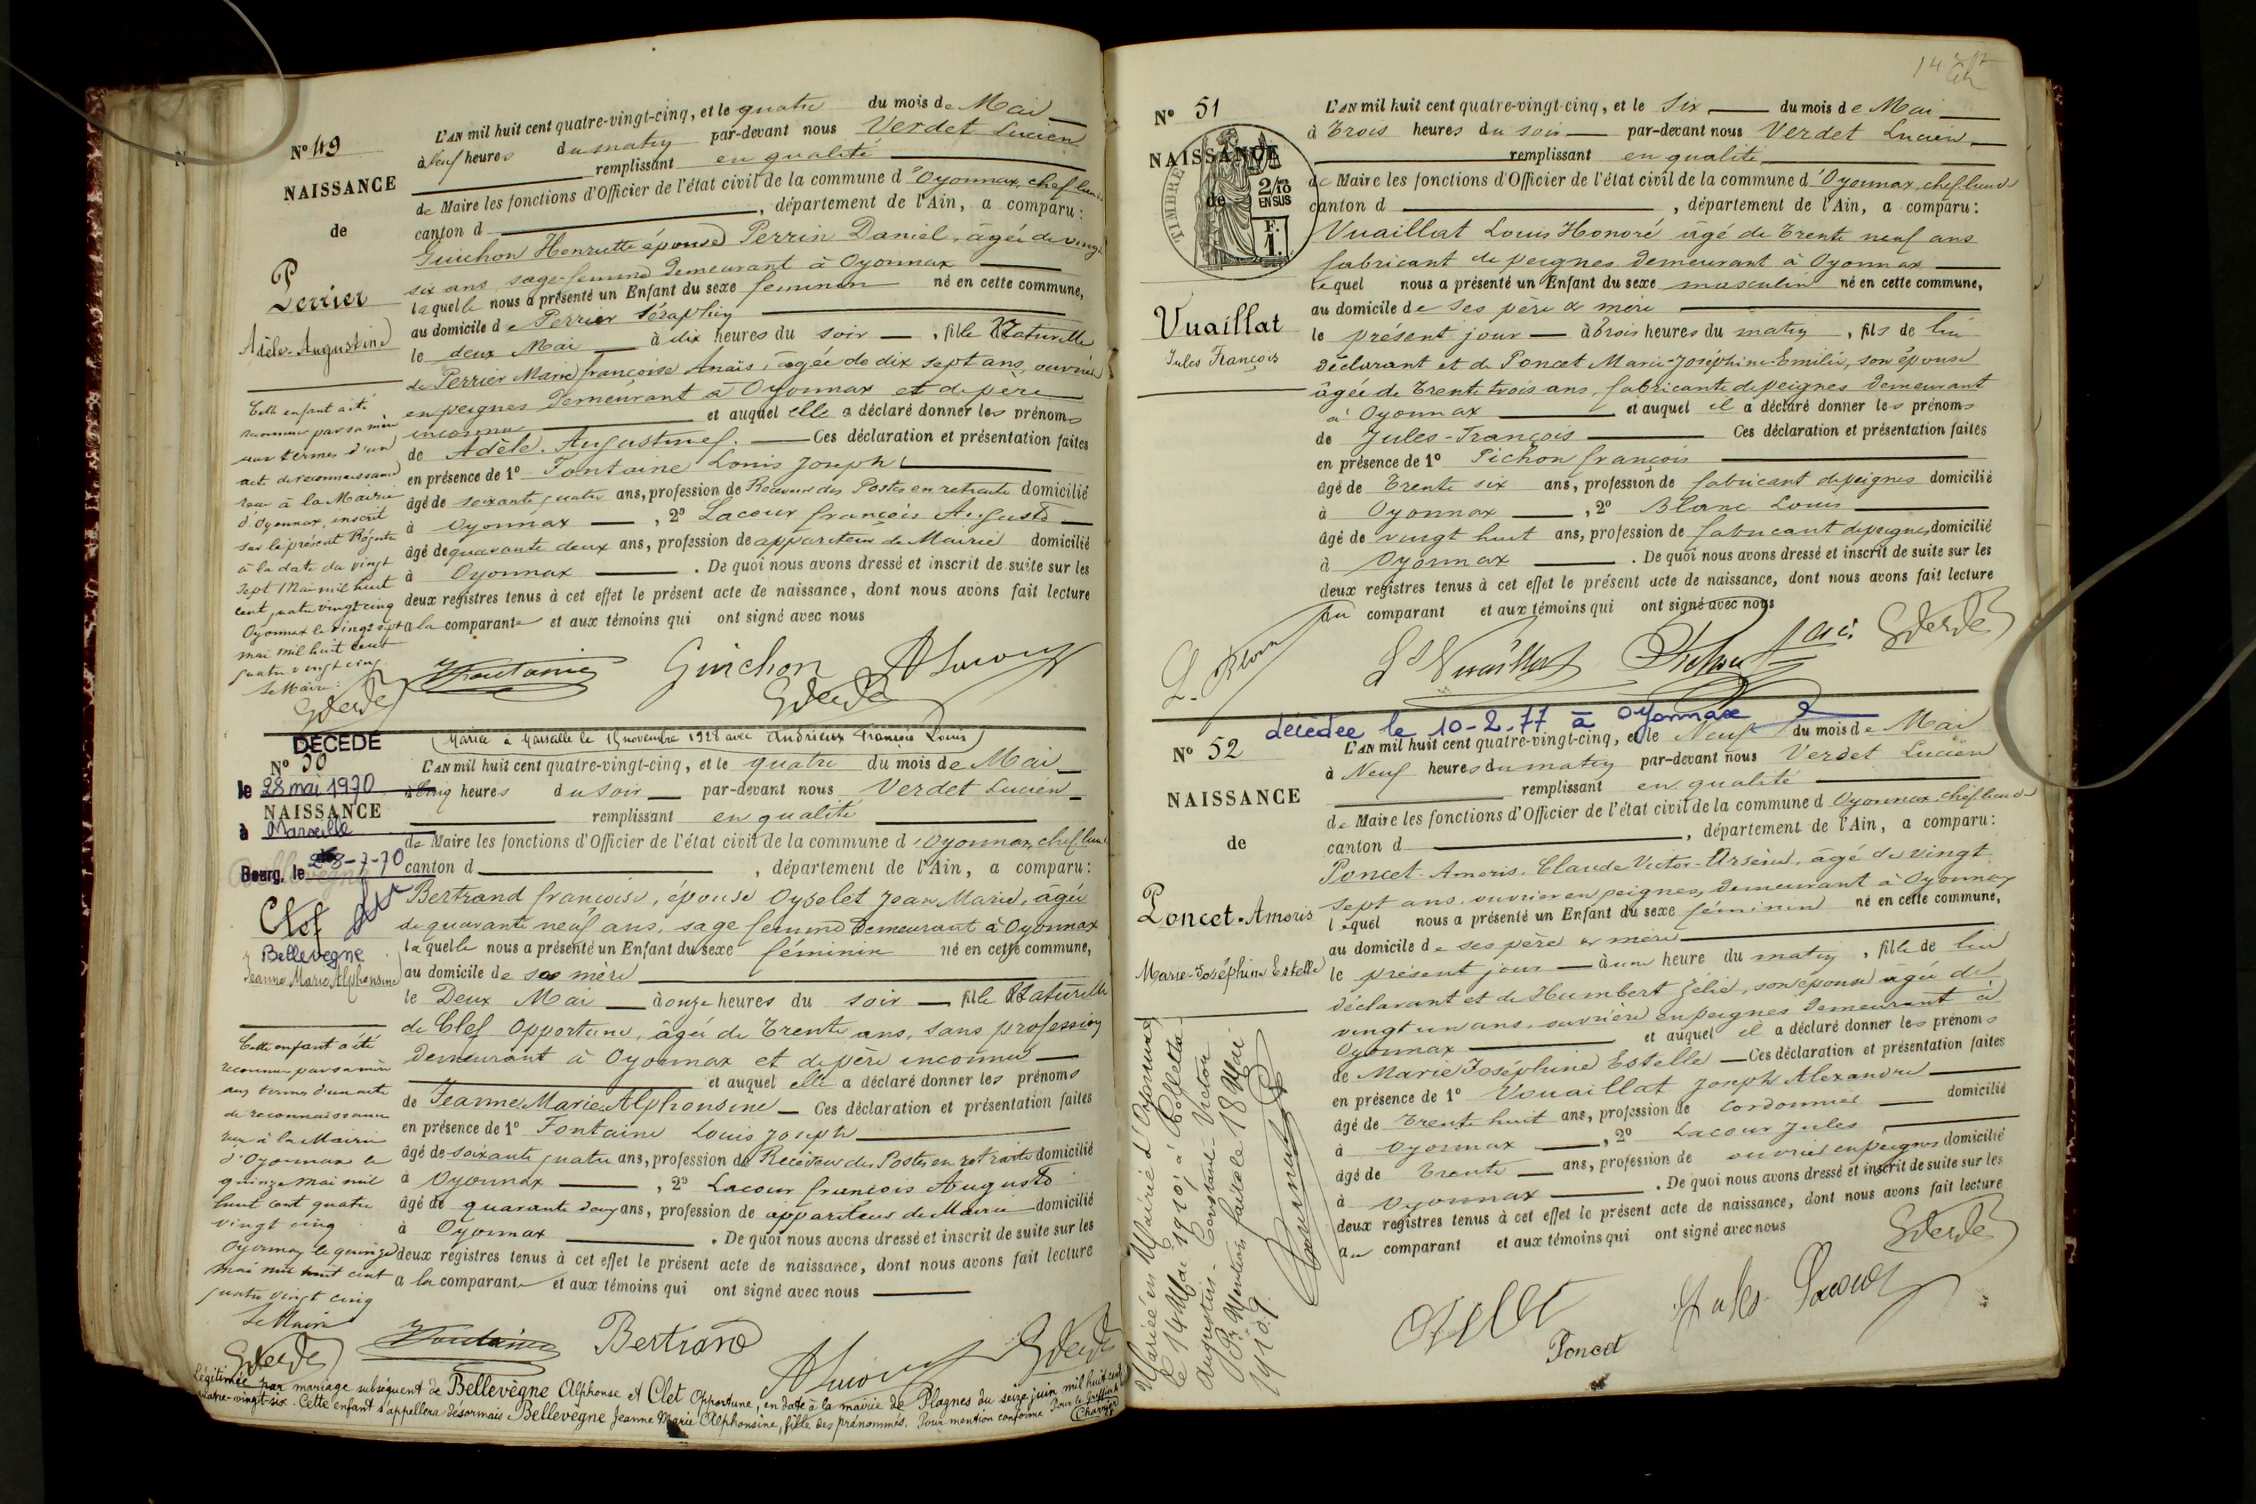 N° 49
NAISSANCE
de
Perrier
Adèle-Augustine
L'AN mil huit cent quatre-vingt-cinq, et le quatre du mois de Mai
à Neuf heures du matin par-devant nous Verdet Lucien
remplissant en qualité
de Maire les fonctions d'Officier de l'état civil de la commune d'Oyonnax, chef lieu de
canton d , département de l'Ain, a comparu:
Guichon Henriette épouse Perrin Daniel, âgée de vingt
six ans, sage-femme demeurant à Oyonnax
laquelle nous a présenté un Enfant du sexe feminin né en cette commune,
au domicile de Perrier Séraphin
le deux Mai à dix heures du soir, fille Naturelle
de Perrier Marie françoise Anaïs, âgée de dix sept ans, ouvrière
en peignes demeurant à Oyonnax et de père
inconnu et auquel elle a déclaré donner les prénoms
de Adèle. Augustine. Ces déclaration et présentation faites
en présence de 1° Fontaine Louis Joseph
âgé de soixante quatre ans, profession de Receveur des Postes en retraite domicilié
à Oyonnax, 2° Lacour françois Auguste
âgé de quarante deux ans, profession de appariteur de Mairie domicilié
à Oyonnax. De quoi nous avons dressé et inscrit de suite sur les
deux registres tenus à cet effet le présent acte de naissance, dont nous avons fait lecture
a la comparante et aux témoins qui ont signé avec nous
Cette enfant a été
reconnue par sa mère
aux termes d'un
acte de reconnaissance
reçu à la Mairie
d'Oyonnax, inscrit
sur le présent Registre
à la date du vingt
sept Mai mil huit
cent quatre vingt cinq
Oyonnax le vingt sept
mai mil huit cent
quatre vingt cinq.
Le Maire:
Fontaine Guichon ALacour
GVerdet GVerdet
DÉCÉDÉ
le 28 mai 1970
à Marseille
Bourg, le 28-7-70
(Mariée à Marseille le 15 novembre 1928 avec Andrieux François Louis)
N° 50
NAISSANCE
Clef
Bellevegne
Jeanne Marie Alphonsine
L'AN mil huit cent quatre-vingt-cinq, et le quatre du mois de Mai
à Cinq heures du soir par-devant nous Verdet Lucien
remplissant en qualité
de Maire les fonctions d'Officier de l'état civil de la commune d'Oyonnax, chef lieu
canton d , département de l'Ain, a comparu:
Bertrand françoise, épouse Oyselet Jean Marie, âgée
de quarante neuf ans, sage femme demeurant à Oyonnax
laquelle nous a présenté un Enfant du sexe féminin né en cette commune,
au domicile de sa mère
le Deux Mai à onze heures du soir fille Naturelle
de Clef Opportune, âgée de Trente ans, sans profession
demeurant à Oyonnax et de père inconnu
et auquel elle a déclaré donner les prénoms
de Jeanne Marie Alphonsine Ces déclaration et présentation faites
en présence de 1° Fontaine Louis Joseph
âgé de soixante quatre ans, profession de Receveur des Postes en retraite domicilié
à Oyonnax, 2° Lacour françois Auguste
âgé de quarante deux ans, profession de appariteur de Mairie domicilié
à Oyonnax. De quoi nous avons dressé et inscrit de suite sur les
deux registres tenus à cet effet le présent acte de naissance, dont nous avons fait lecture
a la comparante et aux témoins qui ont signé avec nous
Cette enfant a été
reconnue par sa mère
aux termes d'un acte
de reconnaissance
reçu à la Mairie
d'Oyonnax le
quinze mai mil
huit cent quatre
vingt cinq
Oyonnax le quinze
mai mil huit cent
quatre vingt cinq
Le Maire
GVerdet Fontaine Bertrand ALacour GVerdet
Légitimée par mariage subséquent de Bellevègne Alphonse et Clet Opportune, en date à la mairie de Plagnes du seize juin mil huit cent
quatre-vingt-six. Cette enfant s'appellera désormais Bellevègne Jeanne Marie Alphonsine, fille des prénommés. Pour mention conforme Pour le Greffier
N° 51
NAISSANCE
de
TIMBRE
2/10 EN SUS
F. 1.
Vuaillat
Jules François
L'AN mil huit cent quatre-vingt-cinq, et le Six du mois de Mai
à Trois heures du soir par-devant nous Verdet Lucien
remplissant en qualité
de Maire les fonctions d'Officier de l'état civil de la commune d'Oyonnax, chef lieu de
canton d , département de l'Ain, a comparu:
Vuaillat Louis Honoré âgé de Trente neuf ans
fabricant de peignes demeurant à Oyonnax
lequel nous a présenté un Enfant du sexe masculin né en cette commune,
au domicile de ses père & mère
le présent jour à Trois heures du matin, fils de lui
déclarant et de Poncet Marie-Joséphine-Emilie, son épouse
âgée de Trente trois ans, fabricante de peignes demeurant
à Oyonnax et auquel il a déclaré donner les prénoms
de Jules-François Ces déclaration et présentation faites
en présence de 1° Pichon françois
âgé de Trente six ans, profession de fabricant de peignes domicilié
à Oyonnax, 2° Blanc Louis
âgé de vingt huit ans, profession de fabricant de peignes, domicilié
à Oyonnax. De quoi nous avons dressé et inscrit de suite sur les
deux registres tenus à cet effet le présent acte de naissance, dont nous avons fait lecture
au comparant et aux témoins qui ont signé avec nous
L. Blanc Ls Vuaillat Pichon GVerdet
décédée le 10-2-77 à Oyonnax
N° 52
NAISSANCE
de
Poncet-Amoris
Marie-Joséphine Estelle
L'AN mil huit cent quatre-vingt-cinq, et le Neuf du mois de Mai
à Neuf heures du matin par-devant nous Verdet Lucien
remplissant en qualité
de Maire les fonctions d'Officier de l'état civil de la commune d Oyonnax, chef lieu de
canton d , département de l'Ain, a comparu:
Poncet-Amoris. Claude Victor-Arsène, âgé de vingt
sept ans, ouvrier en peignes, demeurant à Oyonnax
lequel nous a présenté un Enfant du sexe féminin né en cette commune,
au domicile de ses père & mère
le présent jour à une heure du matin, fille de lui
déclarant et de Humbert Zélie, son épouse âgée de
vingt un ans, ouvrière en peignes demeurant à
Oyonnax et auquel il a déclaré donner les prénoms
de Marie Joséphine Estelle Ces déclaration et présentation faites
en présence de 1° Vouaillat Joseph Alexandre
âgé de Trente huit ans, profession de cordonnier domicilié
à Oyonnax, 2° Lacour Jules
âgé de Trente ans, profession de ouvrier en peignes domicilié
à Oyonnax. De quoi nous avons dressé et inscrit de suite sur les
deux registres tenus à cet effet le présent acte de naissance, dont nous avons fait lecture
au comparant et aux témoins qui ont signé avec nous
GVerdet
Poncet
Jules Lacour
Mariée en Mairie d'Oyonnax
le 14 Mai 1910, à Colletta
Augustin-Constant-Victor
Pr Mention faite le 18 Mai